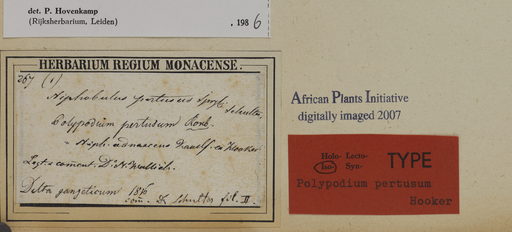 det. P. Hovenkamp
(Rijksherbarium, Leiden) . 198 6
HERBARIUM REGIUM MONACENSE.
267 (1)
Niphobolus pertusus Spr.
Schultes.
Polypodium pertusum Roxb.
Niph. adnascens Kaulf. ex Hooker
Legit & comunt. Dr. N. Wallich.
Delta gangeticum
com. Dr. Schultes fil. II.
African Plants Initiative
digitally imaged 2007
Holo- Lecto-
Iso- Syn-
TYPE
Polypodium pertusum
Hooker